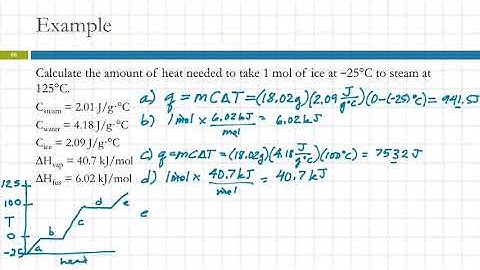 Example
Calculate the amount of heat needed to take 1 mol of ice at −25°C to steam at
125°C.
C_steam = 2.01 J/g·°C
C_water = 4.18 J/g·°C
C_ice = 2.09 J/g·°C
ΔH_vap = 40.7 kJ/mol
ΔH_fus = 6.02 kJ/mol
a) q = mCΔT = (18.02g)(2.09 J/g°C)(0-(-25)°C) = 941.5J
b) 1 mol × 6.02kJ/mol = 6.02kJ
c) q = mCΔT = (18.02g)(4.18 J/g°C)(100°C) = 7532 J
d) 1 mol × 40.7kJ/mol = 40.7kJ
e
125
100
T
0
-25
a
b
c
d
e
heat